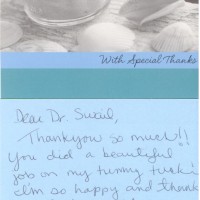 With Special Thanks
Dear Dr. Swail,
Thankyou so much!!
You did a beautiful
job on my tummy tuck!
I'm so happy and thank